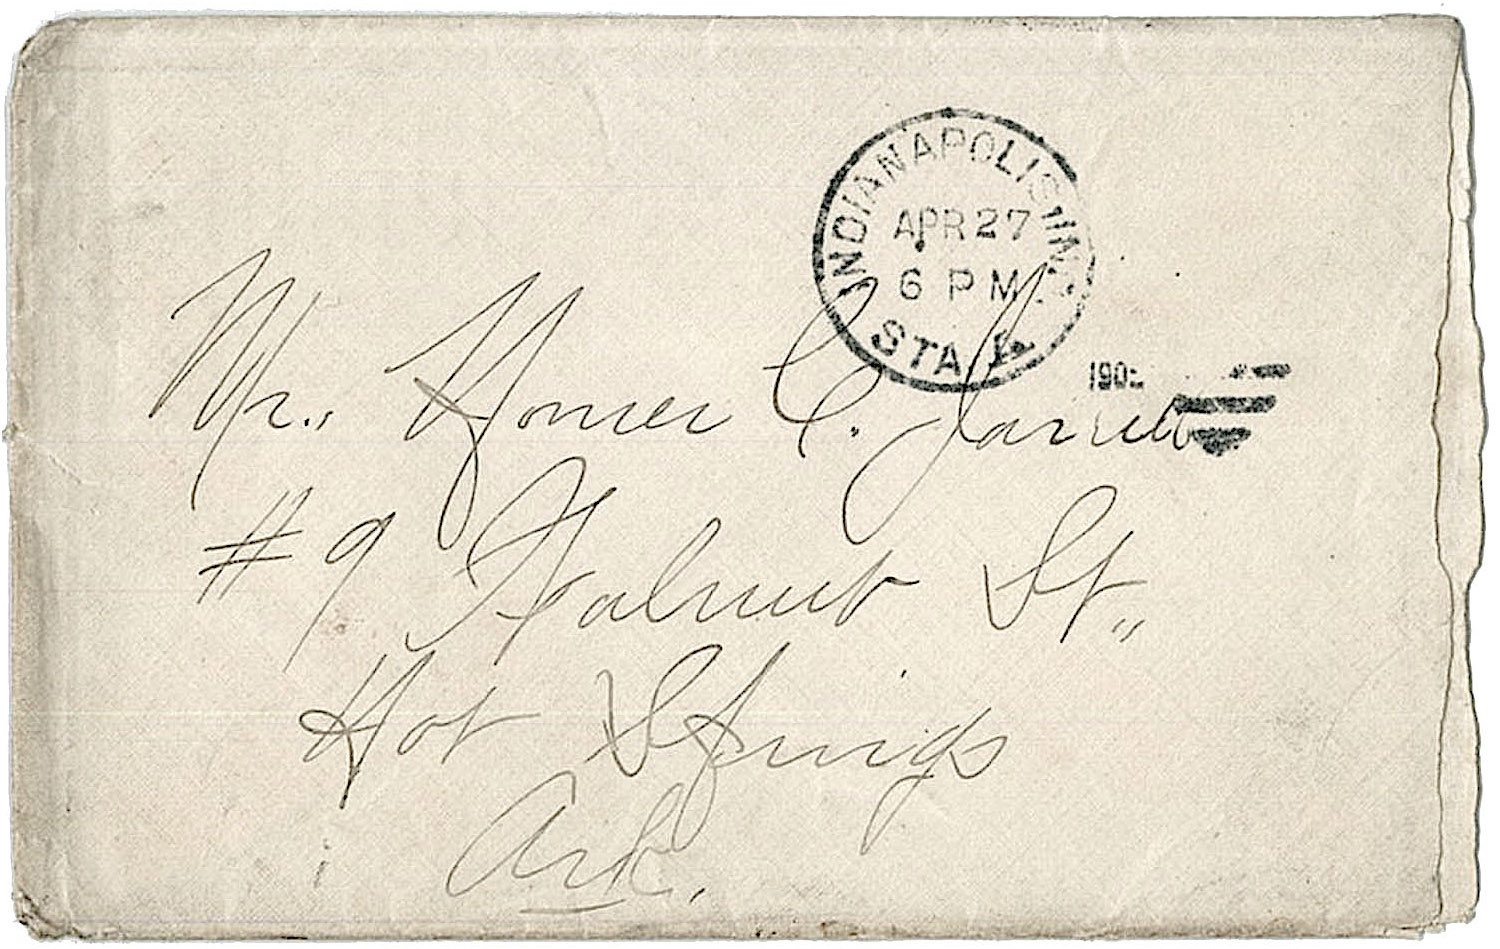 INDIANAPOLIS, IND.
APR 27
6 PM
STA.
190
Mr. Homer C. Jarrett
#9 Walnut St.,
Hot Springs
Ark.